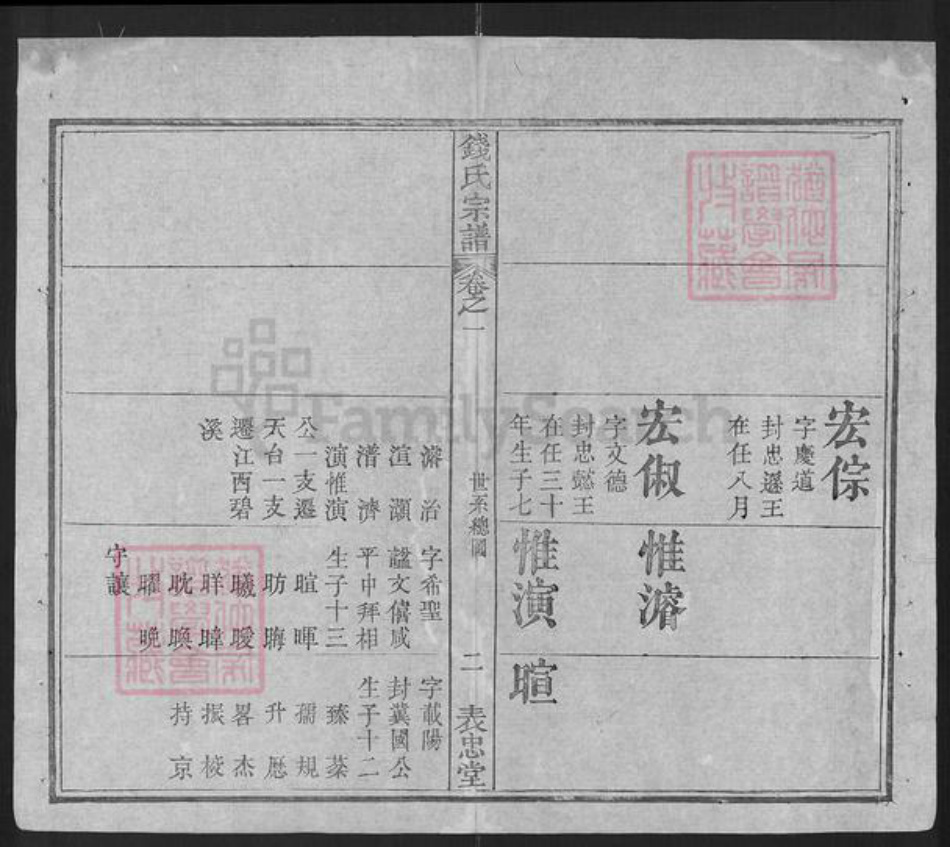 宏倧
字慶道
封忠遜王
在任八月
宏俶
字文德
封忠懿王
在任三十
年生子七
惟濬
惟演
暄
錢氏宗譜
卷之一
世系總圖
二
表忠堂
濬 治
渲 灝
漕 濟
演惟演
公一支遷
天台一支
遷江西碧
溪
字希聖
諡文僖咸
平中拜相
生子十三
暄 暉
昉 晦
曦 曖
㫛 暐
耽 喚
曜 晩
守讓
字載陽
封冀國公
生子十二
臻 棻
孺 規
升 愿
畧 杰
振 棱
持 京
FamilySearch